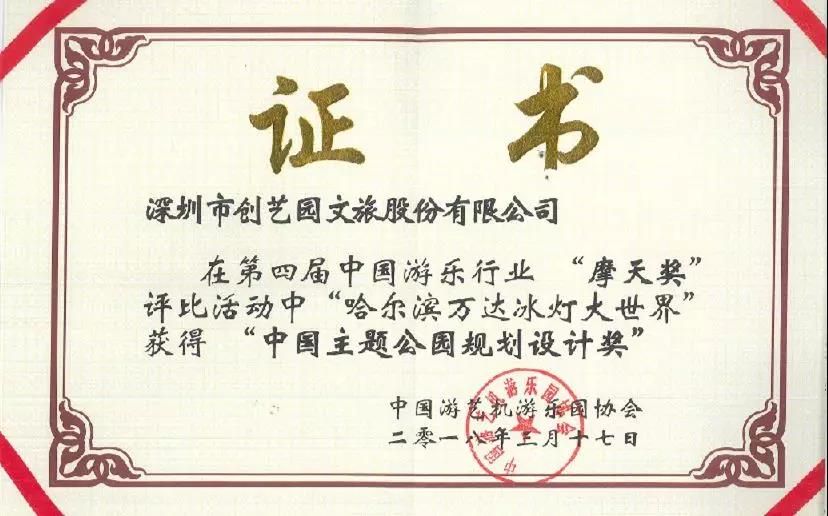 证 书
深圳市创艺园文旅股份有限公司
在第四届中国游乐行业 “摩天奖”
评比活动中“哈尔滨万达冰灯大世界”
获得 “中国主题公园规划设计奖”
中国游艺机游乐园协会
二零一八年三月十七日
中国游艺机游乐园协会